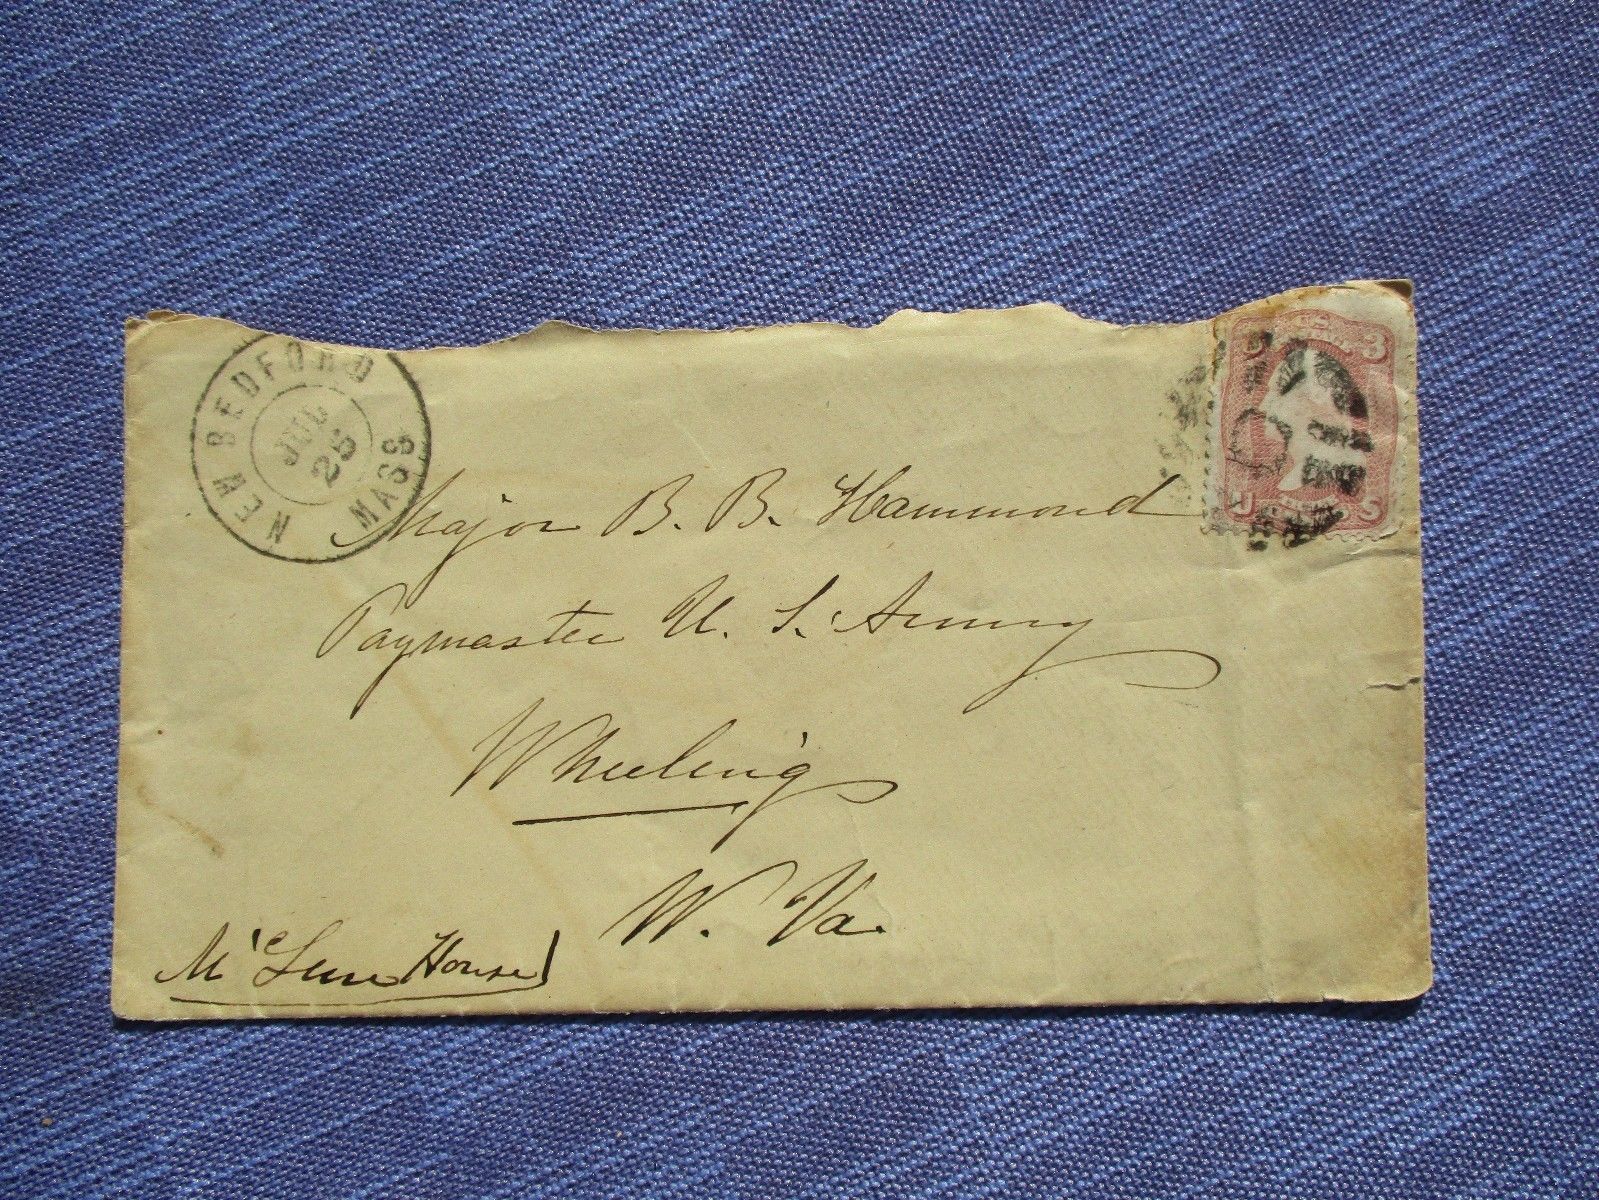 NEW BEDFORD MASS
JUL
25
3
U S
Major B. B. Hammond
Paymaster U. S. Army
Wheeling
W. Va.
McLure House